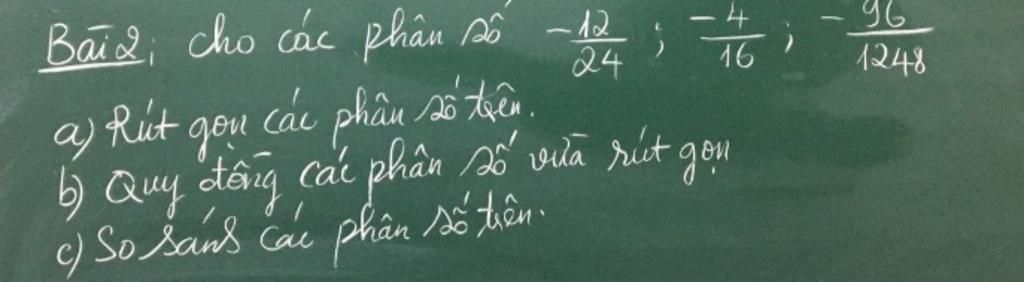 Bài 2; cho các phân số -12/24 ; -4/16 ; -96/1248
a) Rút gọn các phân số trên.
b) Quy đồng các phân số vừa rút gọn
c) So sánh các phân số trên.